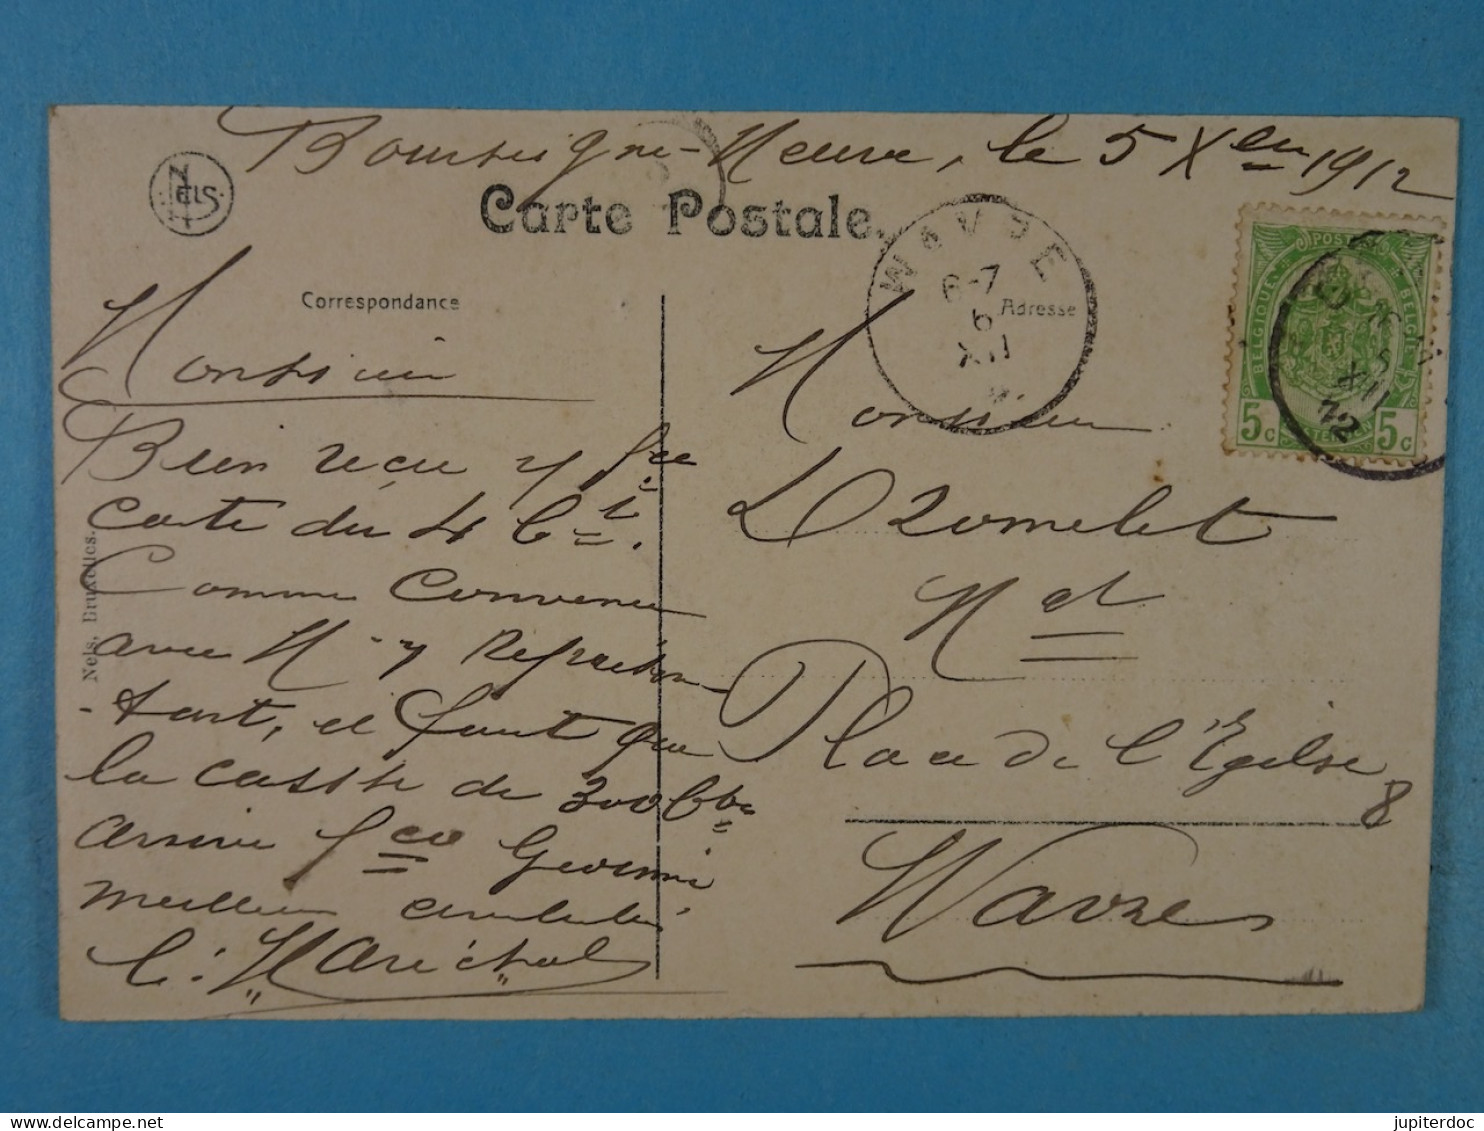 Boursigne-Neuve, le 5 Xbre 1912
NELS
Carte Postale.
Correspondance
Adresse
WAVRE
6-7
6
XII
POSTES
BELGIQUE BELGIE
5c 5c
5
XII
12
Monsieur
Bien reçu
carte du 4 ct.
Comme convenu
avec Mr
-tant, il faut que
la caisse de 300
arrive fco
meilleures salutations
C. Maréchal
Nels, Bruxelles.
Monsieur
Dromelet
Nt
Place de l'Eglise
8
Wavre
jupiterdoc